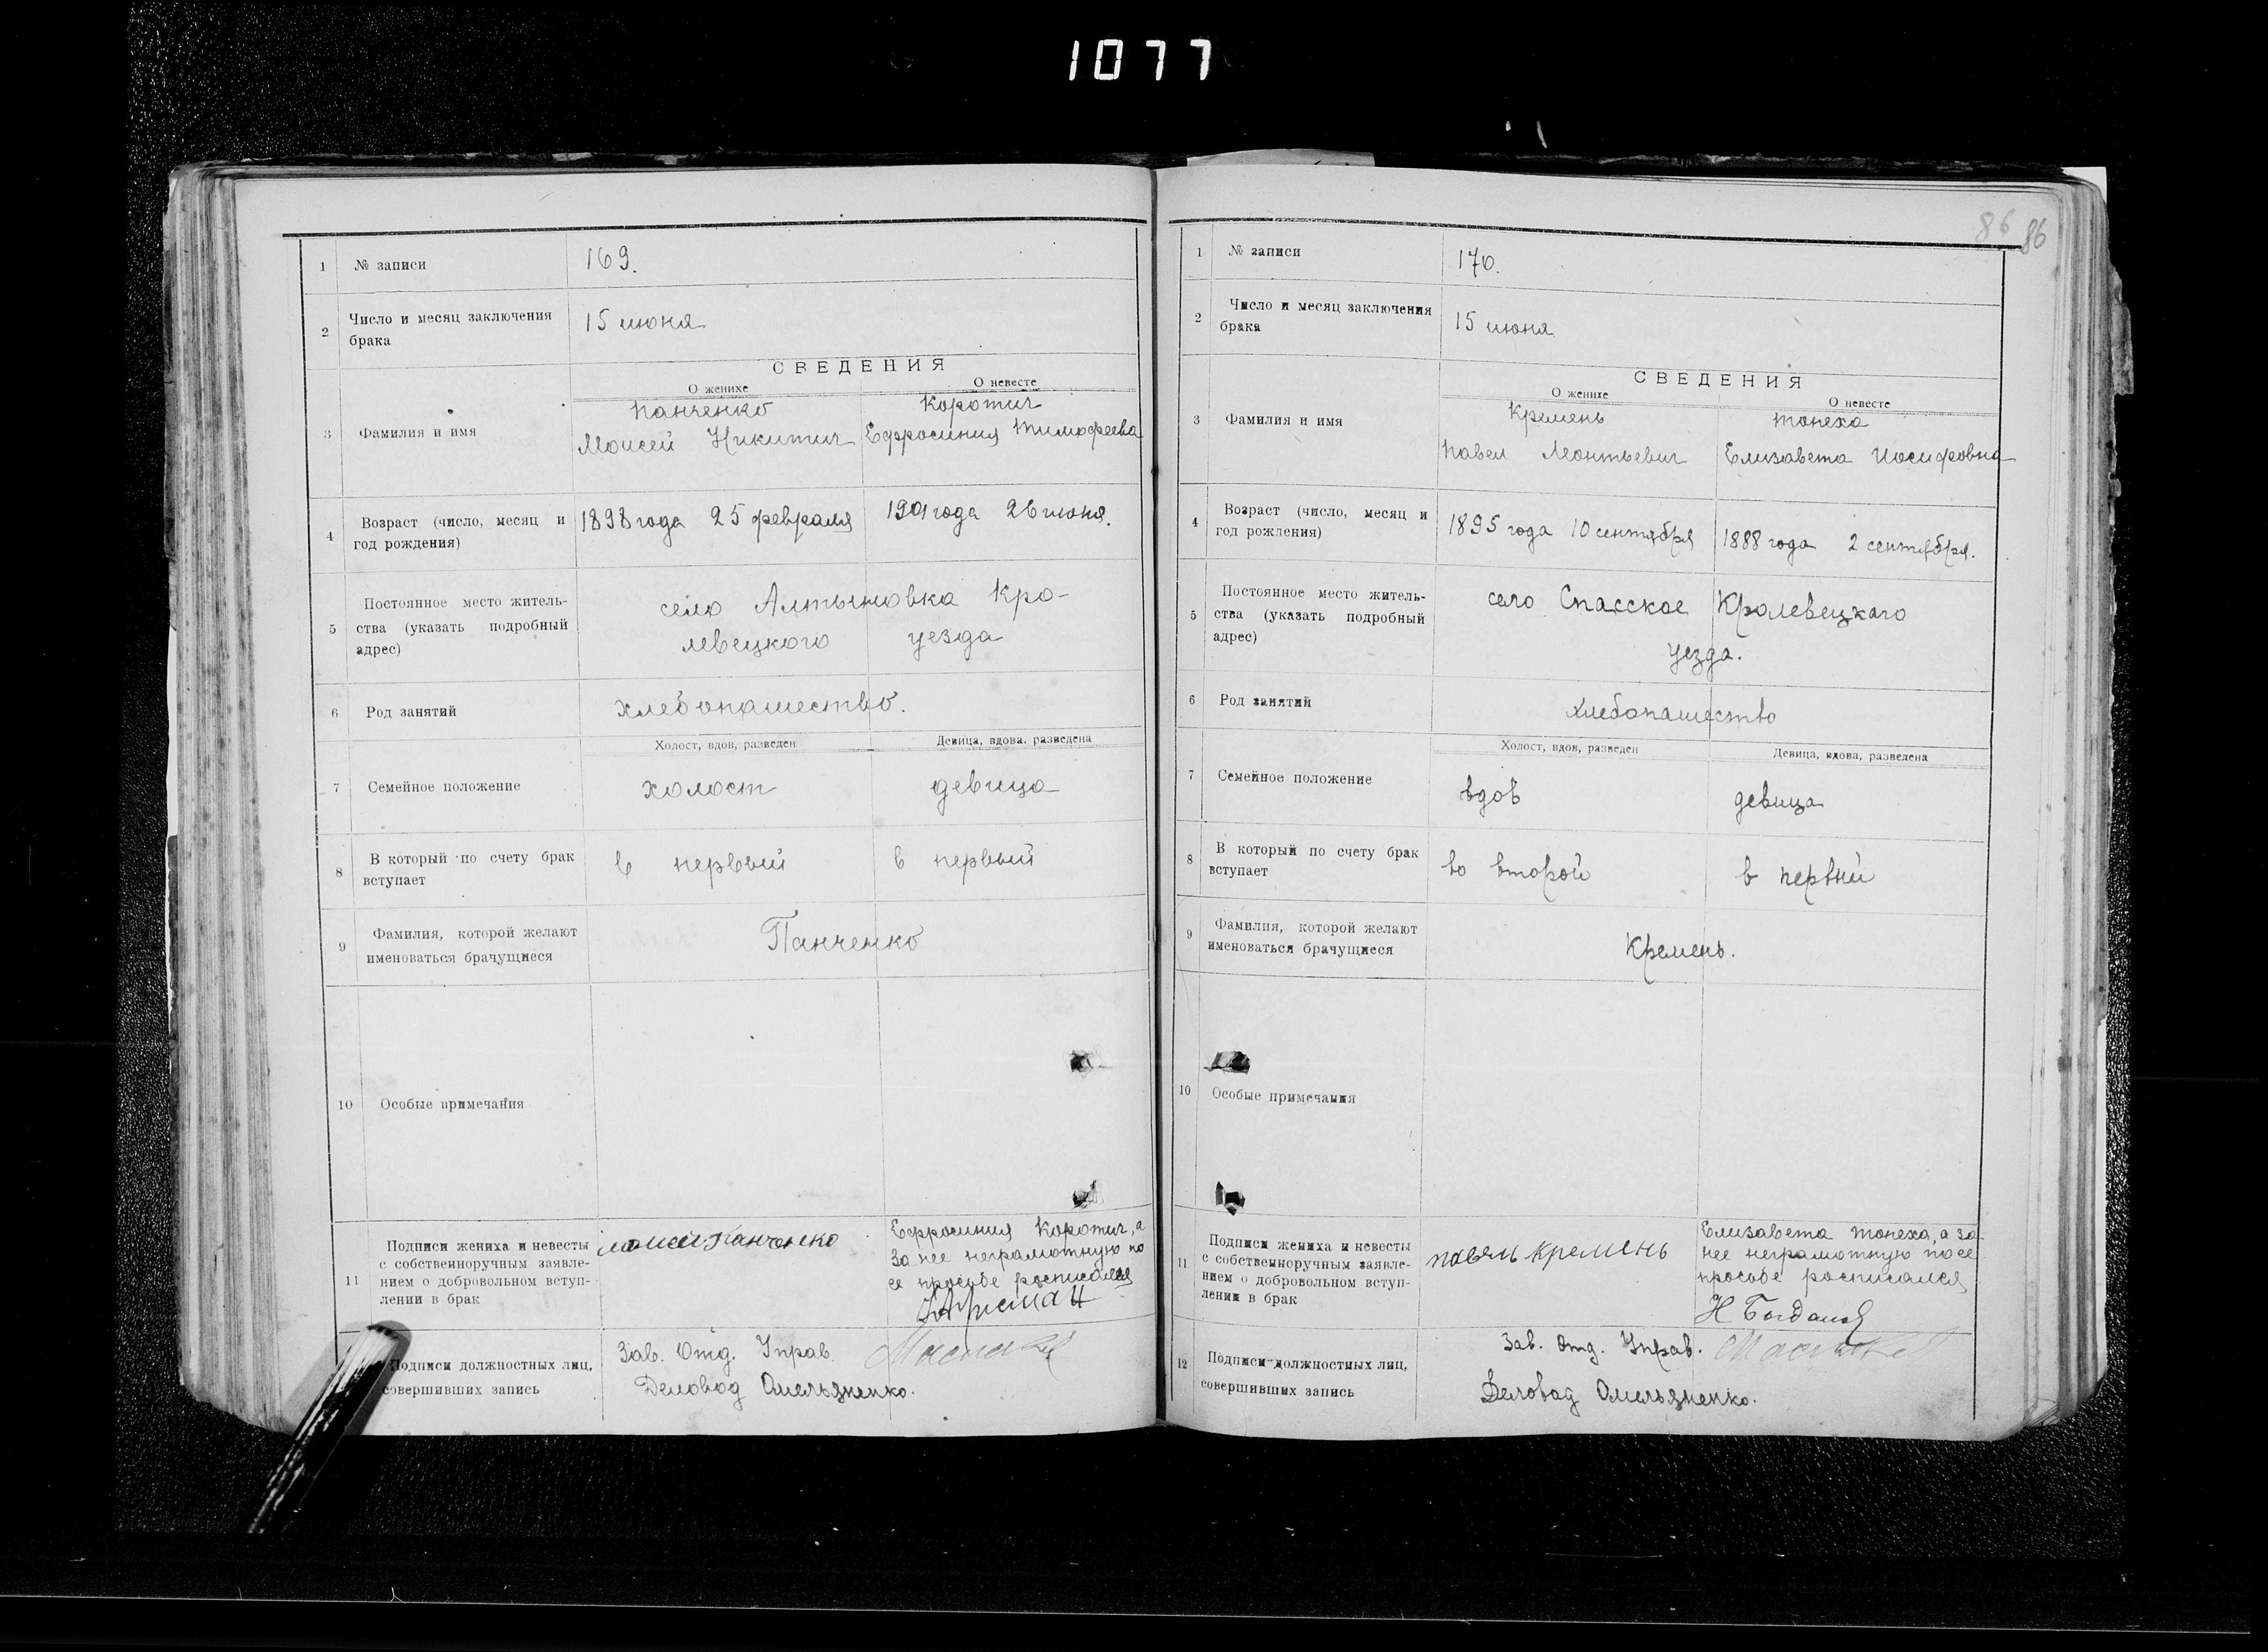 1077
1 № записи 169.
2 Число и месяц заключения
брака
15 июня
СВЕДЕНИЯ
О женихе О невесте
3 Фамилия и имя
Панченко Коротич
Моисей Никитич Ефросиния Тимофеева
4 Возраст (число, месяц и
год рождения)
1898 года 25 февраля 1901 года 26 июня.
5 Постоянное место житель-
ства (указать подробный
адрес)
село Алтыновка Кро-
левецкого уезда
6 Род занятий хлебопашество.
Холост, вдов, разведен Девица, вдова, разведена
7 Семейное положение холост девица
8 В который по счету брак
вступает
в первый в первый
9 Фамилия, которой желают
именоваться брачущиеся
Панченко
10 Особые примечания
11 Подписи жениха и невесты
с собственноручным заявле-
нием о добровольном вступ-
лении в брак
Моисей Панченко
Ефросиния Коротич, а
за нее неграмотную по
ее просьбе росписался
Подписи должностных лиц,
совершивших запись
Зав. Отд. Управ.
Деловод Омельяненко.
86 86
1 № записи 170.
2 Число и месяц заключения
брака
15 июня
СВЕДЕНИЯ
О женихе О невесте
3 Фамилия и имя
Кремень Тонеха
Павел Леонтьевич Елизавета Иосифовна
4 Возраст (число, месяц и
год рождения)
1895 года 10 сентября 1888 года 2 сентября.
5 Постоянное место житель-
ства (указать подробный
адрес)
село Спасское Кролевецкаго
уезда.
6 Род занятий хлебопашество
Холост, вдов, разведен Девица, вдова, разведена
7 Семейное положение вдов девица
8 В который по счету брак
вступает
во второй в первый
9 Фамилия, которой желают
именоваться брачущиеся
Кремень.
10 Особые примечания
11 Подписи жениха и невесты
с собственноручным заявле-
нием о добровольном вступ-
лении в брак
павель кремень
Елизавета Тонеха, а за
нее неграмотную по ее
просьбе росписался
Н Богданов
12 Подписи должностных лиц,
совершивших запись
Зав. Отд. Управ.
Деловод Омельяненко.